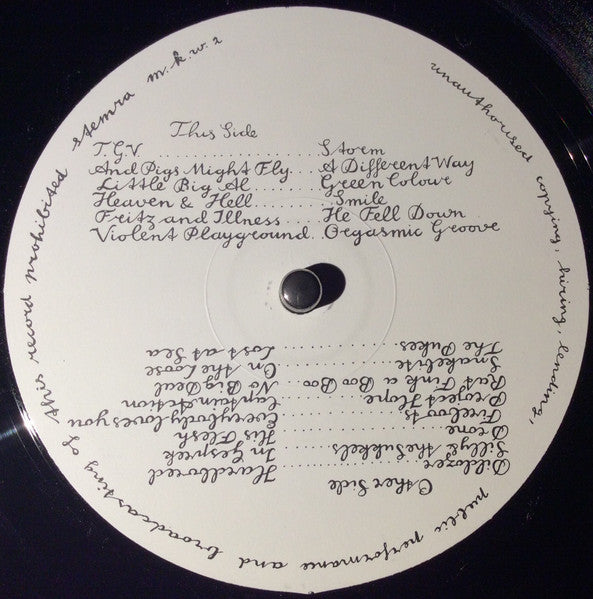 This Side
T.G.V. .......... Storm
And Pigs Might Fly... A Different Way
Little Big Al ....... Green Colour
Heaven & Hell ....... Smile
Fritz and Illness .... He Fell Down
Violent Playground.. Orgasmic Groove
Other Side
Dildozer ..........
Silly & the Sukkels ..... In Gesprek
Drome .......... His Flesh
Fireboots .......... Everybody loves you
Project Hope ....... Captain Action
Rat Fink a Boo Boo ... No Big Deal
Snakebite .......... On the Loose
The Pukes .......... Lost at Sea
unauthorised copying, hiring, lending, public performance and broadcasting of this record prohibited stemra m.k.w.2